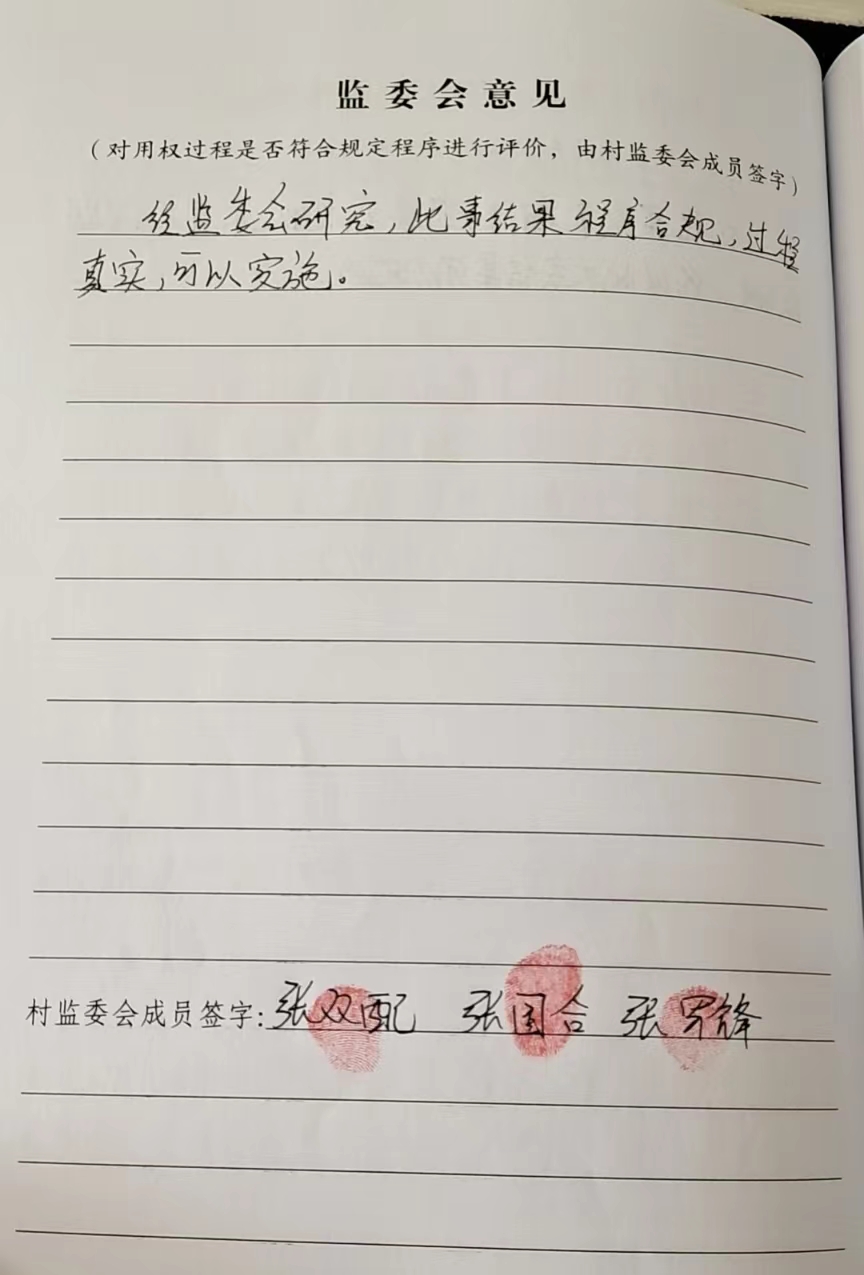 监委会意见
（对用权过程是否符合规定程序进行评价，由村监委会成员签字）
经监委会研究，此事结果程序合规，过程
真实，可以实施。
村监委会成员签字：张双配 张国合 张军锋